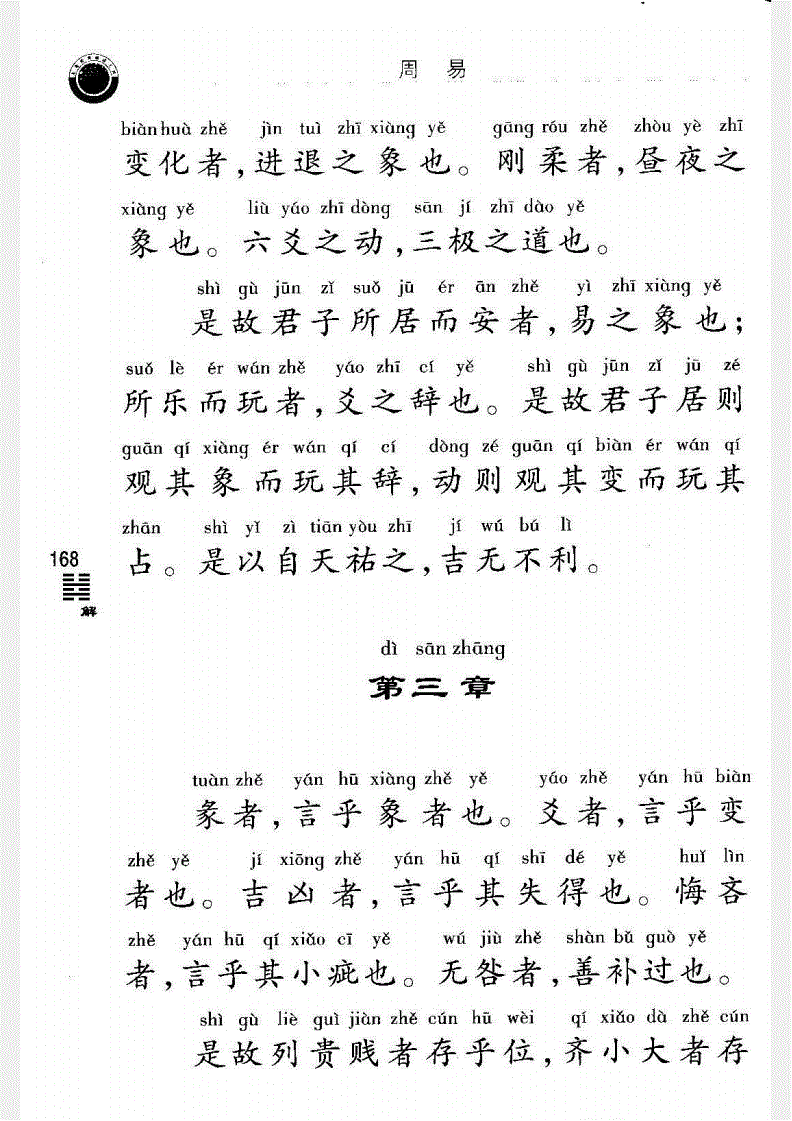 周 易
biàn huà zhě jìn tuì zhī xiàng yě gāng róu zhě zhòu yè zhī
变化者,进退之象也。刚柔者,昼夜之
xiàng yě liù yáo zhī dòng sān jí zhī dào yě
象也。六爻之动,三极之道也。
shì gù jūn zǐ suǒ jū ér ān zhě yì zhī xiàng yě
是故君子所居而安者,易之象也;
suǒ lè ér wán zhě yáo zhī cí yě shì gù jūn zǐ jū zé
所乐而玩者,爻之辞也。是故君子居则
guān qí xiàng ér wán qí cí dòng zé guān qí biàn ér wán qí
观其象而玩其辞,动则观其变而玩其
zhān shì yǐ zì tiān yòu zhī jí wú bú lì
占。是以自天祐之,吉无不利。
168
解
dì sān zhāng
第三章
tuàn zhě yán hū xiàng zhě yě yáo zhě yán hū biàn
彖者,言乎象者也。爻者,言乎变
zhě yě jí xiōng zhě yán hū qí shī dé yě huǐ lìn
者也。吉凶者,言乎其失得也。悔吝
zhě yán hū qí xiǎo cī yě wú jiù zhě shàn bǔ guò yě
者,言乎其小疵也。无咎者,善补过也。
shì gù liè guì jiàn zhě cún hū wèi qí xiǎo dà zhě cún
是故列贵贱者存乎位,齐小大者存